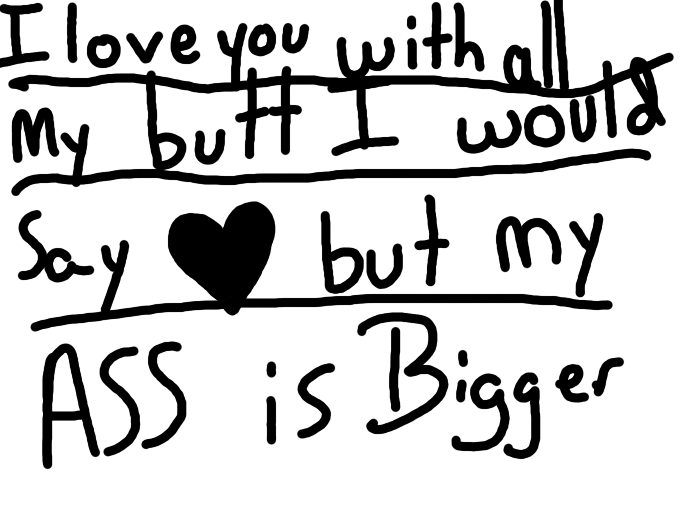 I love you with all
My butt I would
Say ♥ but my
ASS is Bigger